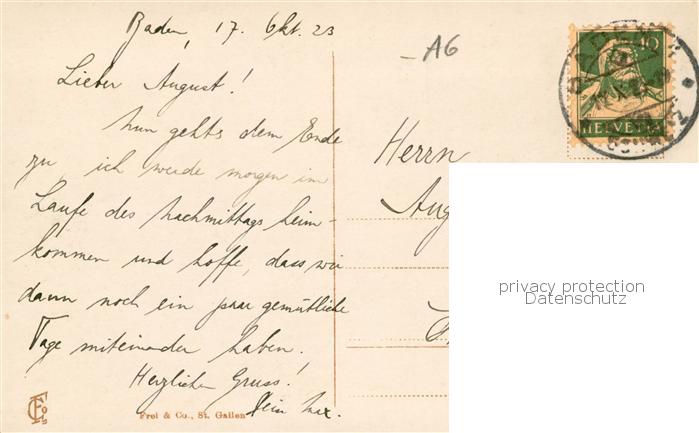 Baden, 17. Okt. 23
A6
Lieber August!
Nun gehts dem Ende
zu, ich werde morgen im
Laufe des Nachmittags heim-
kommen und hoffe, dass wir
dann noch ein paar gemütliche
Tage miteinander haben.
Herzlichen Gruss!
Dein Max.
Frei & Co., St. Gallen
10
HELVETIA
Herrn
Aug
privacy protection
Datenschutz